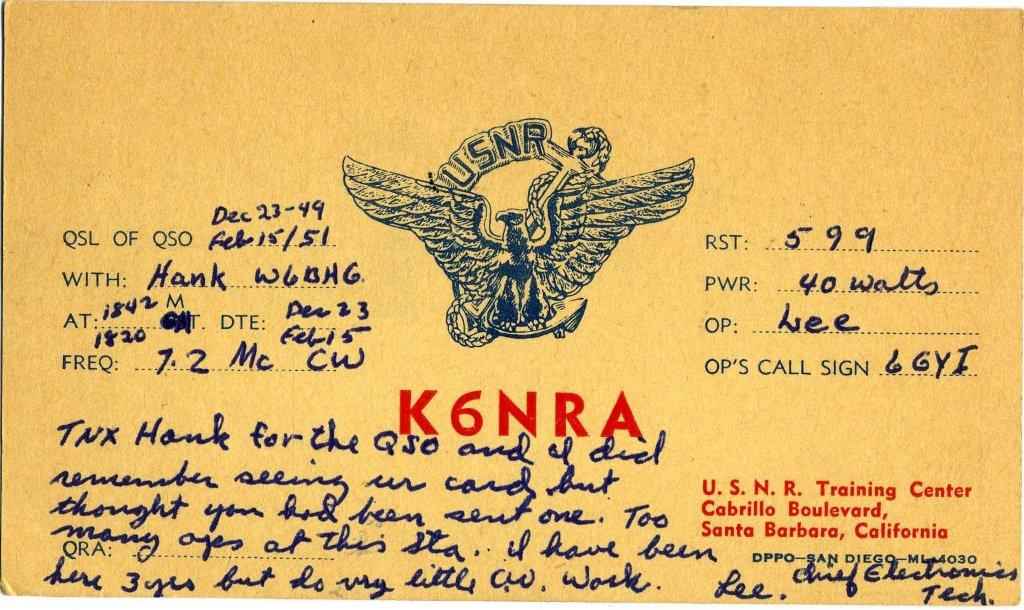 USNR
Dec 23-49
QSL OF QSO Feb 15/51
WITH: Hank W6BHG
1842 M
AT: 1820 T. DTE: Dec 23
Feb 15
FREQ: 7.2 Mc CW
RST: 599
PWR: 40 watts
OP: Lee
OP'S CALL SIGN 6GYI
K6NRA
TNX Hank for the QSO and I did
remember seeing ur card but
thought you had been sent one. Too
many ops at this Sta. I have been
QRA:
here 3 yrs but do vry little C.W. Work.
U. S. N. R. Training Center
Cabrillo Boulevard,
Santa Barbara, California
DPPO—SAN DIEGO—ML-4030
Lee. Chief Electronics
Tech.